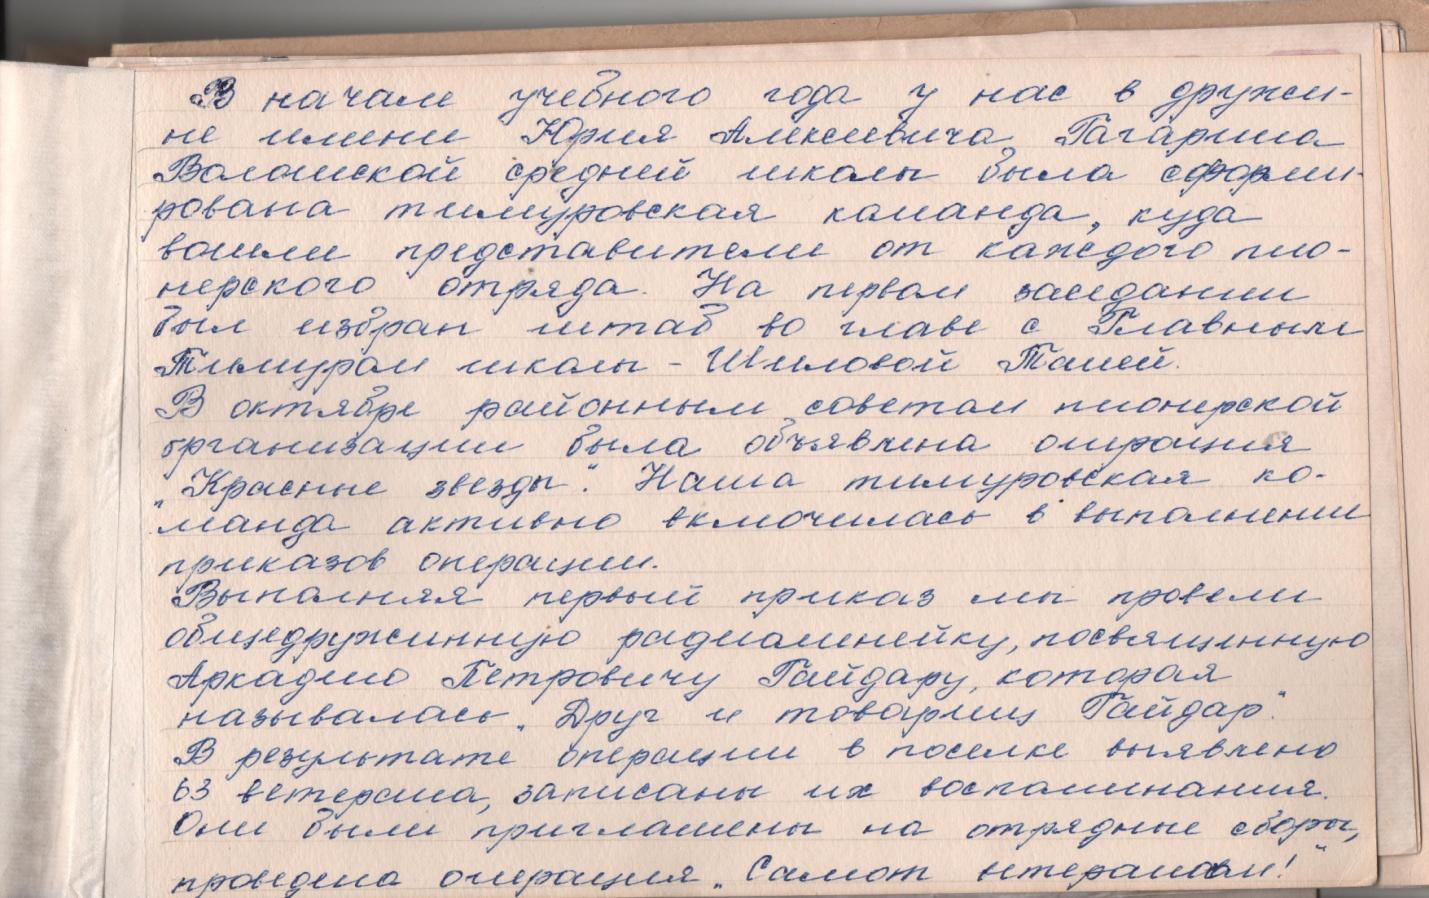 В начале учебного года у нас в дружи-
не имени Юрия Алексеевича Гагарина
Волошской средней школы была сформи-
рована тимуровская команда, куда
вошли представители от каждого пио-
нерского отряда. На первом заседании
был избран штаб во главе с Главным
Тимуром школы - Шиловой Таней.
В октябре районным советом пионерской
организации была объявлена операция
"Красные звезды". Наша тимуровская ко-
манда активно включилась в выполнении
приказов операции.
Выполняя первый приказ мы провели
общедружинную радиолинейку, посвященную
Аркадию Петровичу Гайдару, которая
называлась "Друг и товарищ Гайдар".
В результате операции в поселке выявлено
63 ветерана, записаны их воспоминания.
Они были приглашены на отрядные сборы,
проведена операция "Салют ветеранам!"